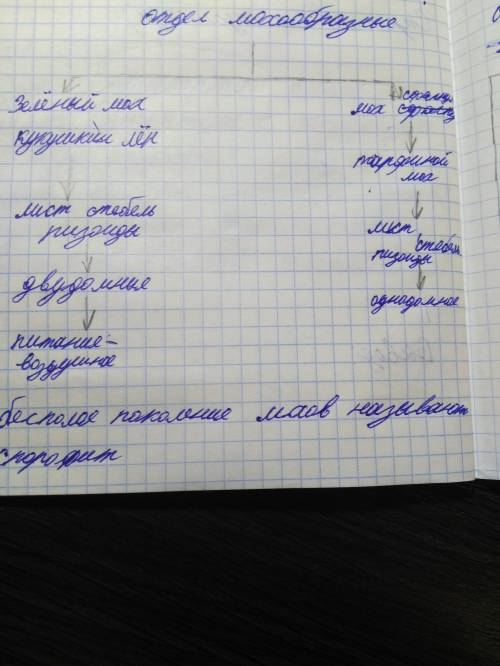 отдел мохообразные
Зелёный мох
кукушкин лён
лист стебель
ризоиды
двудомные
питание-
воздушное
мох
торфяной
мох
лист, стебель
ризоиды
однодомное
бесполое поколение мхов называют
спорофит